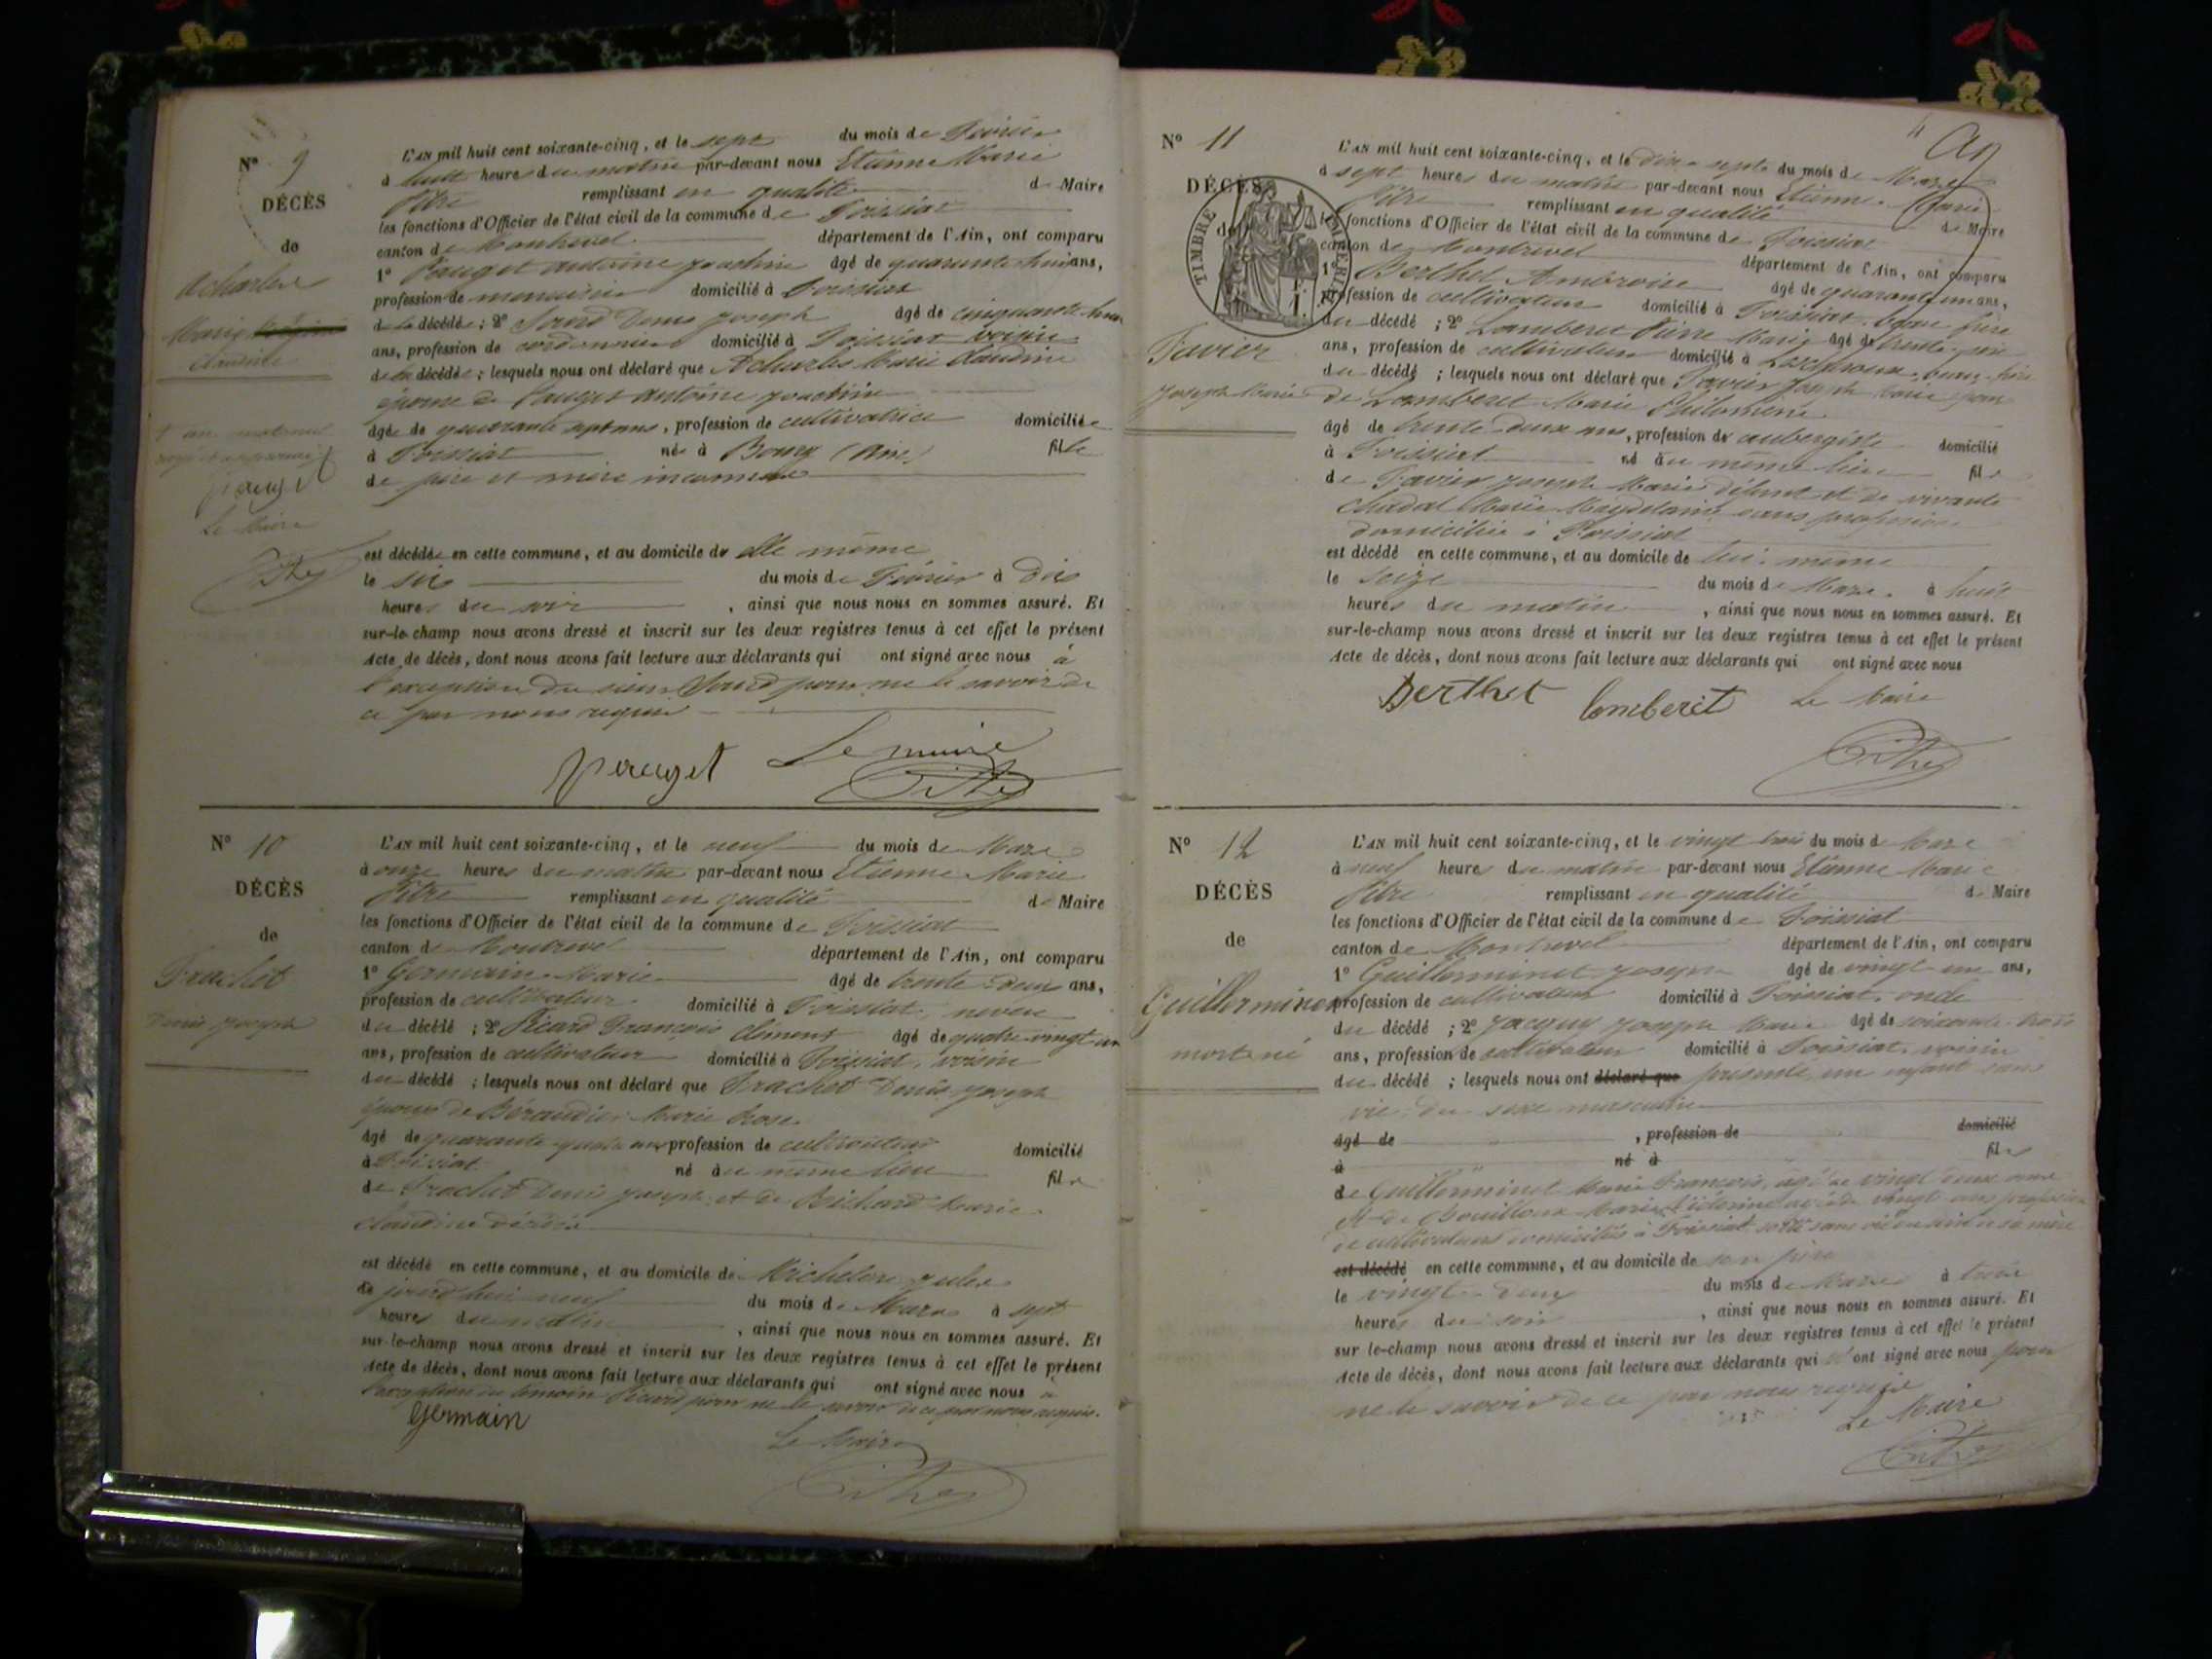 N° 9
DÉCÈS
de
Acharles
Marie
Claudine
Pauget
Le Maire
L'AN mil huit cent soixante-cinq, et le sept du mois de Février
à huit heures du matin par-devant nous Etienne Marie
Pitre remplissant en qualité de Maire
les fonctions d'Officier de l'état civil de la commune de Foissiat
canton de Montrevel département de l'Ain, ont comparu
1° Pauget Antoine Joachim âgé de quarante huit ans,
profession de menuisier domicilié à Foissiat
de la décédée ; 2° Denis Joseph âgé de cinquante
ans, profession de cordonnier domicilié à Foissiat voisin
de la décédée ; lesquels nous ont déclaré que Acharles Marie Claudine
épouse de Pauget Antoine Joachim
âgée de quarante sept ans, profession de cultivatrice domiciliée
à Foissiat née à Bourg (Ain) fille
de père et mère inconnus
est décédée en cette commune, et au domicile de elle même
le six du mois de Février à dix
heures du soir , ainsi que nous nous en sommes assuré. Et
sur-le-champ nous avons dressé et inscrit sur les deux registres tenus à cet effet le présent
Acte de décès, dont nous avons fait lecture aux déclarants qui ont signé avec nous à
l'exception du sieur pour ne le savoir de
ce par nous requis
Pauget Le maire
Pitre
N° 10
DÉCÈS
de
Trachet
Denis Joseph
L'AN mil huit cent soixante-cinq, et le neuf du mois de Mars
à onze heures du matin par-devant nous Etienne Marie
Pitre remplissant en qualité de Maire
les fonctions d'Officier de l'état civil de la commune de Foissiat
canton de Montrevel département de l'Ain, ont comparu
1° Germain Marie âgé de trente deux ans,
profession de cultivateur domicilié à Foissiat, neveu
du décédé ; 2° Picard François Clément âgé de quatre-vingt un
ans, profession de cultivateur domicilié à Foissiat, voisin
du décédé ; lesquels nous ont déclaré que Trachet Denis Joseph
époux de Béraudier Marie Rose
âgé de quarante quatre ans profession de cultivateur domicilié
à Foissiat né au même lieu fils
de Trachet Denis Joseph et de Marie
Claudine décédés
est décédé en cette commune, et au domicile de Michelon
le jourd'hui neuf du mois de Mars à sept
heures du matin , ainsi que nous nous en sommes assuré. Et
sur-le-champ nous avons dressé et inscrit sur les deux registres tenus à cet effet le présent
Acte de décès, dont nous avons fait lecture aux déclarants qui ont signé avec nous à
l'exception du témoin Picard pour ne le savoir de ce par nous requis.
Germain
Le Maire
Pitre
N° 11
DÉCÈS
TIMBRE IMPÉRIAL
Favier
Joseph Marie
L'AN mil huit cent soixante-cinq, et le dix-sept du mois de Mars
à sept heures du matin par-devant nous Etienne Marie
Pitre remplissant en qualité de Maire
les fonctions d'Officier de l'état civil de la commune de Foissiat
canton de Montrevel département de l'Ain, ont comparu
1° Berthet Ambroise âgé de quarante un ans,
profession de cultivateur domicilié à Foissiat, beau frère
du décédé ; 2° Lomberet Pierre Marie âgé de trente
ans, profession de cultivateur domicilié à beau-frère
du décédé ; lesquels nous ont déclaré que Favier Joseph Marie époux
de Lomberet Marie Philomène
âgé de trente-deux ans, profession de aubergiste domicilié
à Foissiat né au même lieu fils
de Favier Joseph Marie défunt et de vivante
Chadal Marie Magdelaine sans profession
domiciliée à Foissiat
est décédé en cette commune, et au domicile de lui-même
le seize du mois de Mars à huit
heures du matin , ainsi que nous nous en sommes assuré. Et
sur-le-champ nous avons dressé et inscrit sur les deux registres tenus à cet effet le présent
Acte de décès, dont nous avons fait lecture aux déclarants qui ont signé avec nous
Berthet Lomberet Le Maire
Pitre
N° 12
DÉCÈS
de
Guillerminet
mort-né
L'AN mil huit cent soixante-cinq, et le vingt trois du mois de Mars
à neuf heures du matin par-devant nous Etienne Marie
Pitre remplissant en qualité de Maire
les fonctions d'Officier de l'état civil de la commune de Foissiat
canton de Montrevel département de l'Ain, ont comparu
1° Guillerminet Joseph âgé de vingt-un ans,
profession de cultivateur domicilié à Foissiat, oncle
du décédé ; 2° Jacquet Joseph Marie âgé de soixante-trois
ans, profession de cultivateur domicilié à Foissiat, voisin
du décédé ; lesquels nous ont déclaré que présenté un enfant sans
vie du sexe masculin
âgé de , profession de domicilié
à né à fils
de Guillerminet Marie François, âgé de vingt deux ans
et de Bouilloux Marie âgée de vingt ans profession
de cultivateurs domiciliés à Foissiat, sorti sans vie du sein de sa mère
est décédé en cette commune, et au domicile de son père
le vingt-deux du mois de Mars à trois
heures du soir , ainsi que nous nous en sommes assuré. Et
sur le-champ nous avons dressé et inscrit sur les deux registres tenus à cet effet le présent
Acte de décès, dont nous avons fait lecture aux déclarants qui n'ont signé avec nous pour
ne le savoir de ce par nous requis
Le Maire
Pitre